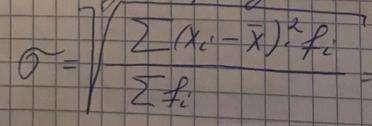 σ = √(Σ(xᵢ − x̄)².fᵢ / Σfᵢ) =